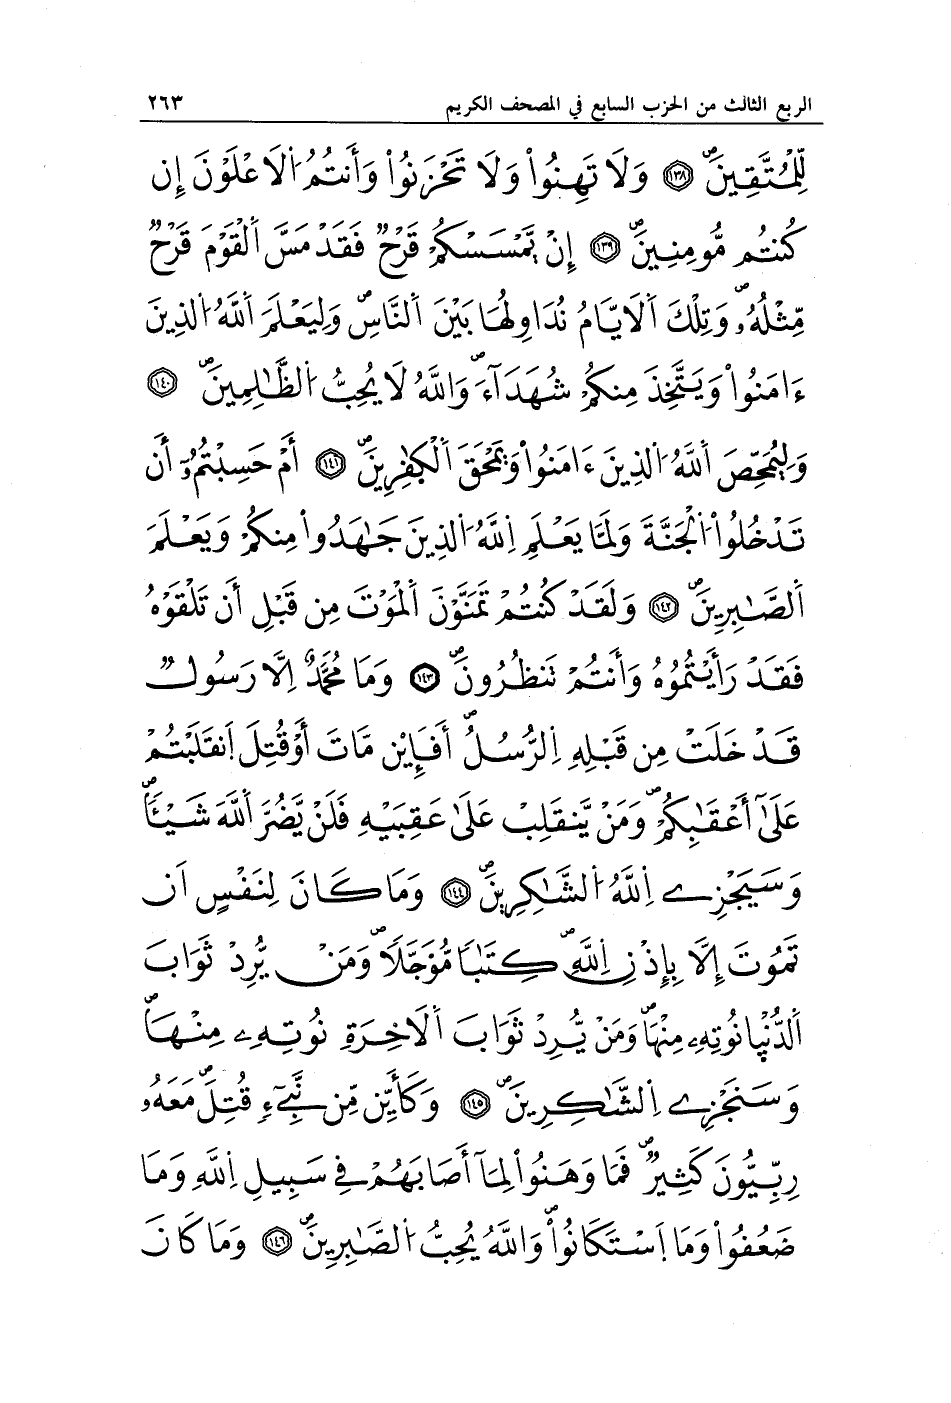 الربع الثالث من الحزب السابع في المصحف الكريم ٢٦٣
لِّلْمُتَّقِينَۖ ١٣٨ وَلَا تَهِنُواْ وَلَا تَحْزَنُواْ وَأَنتُمُ اَ۬لَاعْلَوْنَ إِن
كُنتُم مُّومِنِينَۖ ١٣٩ إِنْ يَّمْسَسْكُمْ قَرْحٞ فَقَدْ مَسَّ اَ۬لْقَوْمَ قَرْحٞ
مِّثْلُهُۥۖ وَتِلْكَ اَ۬لَايَّامُ نُدَاوِلُهَا بَيْنَ اَ۬لنَّاسِۖ وَلِيَعْلَمَ اَ۬للَّهُ اُ۬لذِينَ
ءَامَنُواْ وَيَتَّخِذَ مِنكُمْ شُهَدَآءَۖ وَاللَّهُ لَا يُحِبُّ اُ۬لظَّٰلِمِينَۖ ١٤٠
وَلِيُمَحِّصَ اَ۬للَّهُ اُ۬لذِينَ ءَامَنُواْ وَيَمْحَقَ اَ۬لْكَٰفِرِينَۖ ١٤١ أَمْ حَسِبْتُمُۥٓ أَن
تَدْخُلُواْ اُ۬لْجَنَّةَ وَلَمَّا يَعْلَمِ اِ۬للَّهُ اُ۬لذِينَ جَٰهَدُواْ مِنكُمْ وَيَعْلَمَ
اَ۬لصَّٰبِرِينَۖ ١٤٢ وَلَقَدْ كُنتُمْ تَمَنَّوْنَ اَ۬لْمَوْتَ مِن قَبْلِ أَن تَلْقَوْهُ
فَقَدْ رَأَيْتُمُوهُ وَأَنتُمْ تَنظُرُونَۖ ١٤٣ وَمَا مُحَمَّدٌ اِلَّا رَسُولٞ
قَدْ خَلَتْ مِن قَبْلِهِ اِ۬لرُّسُلُۖ أَفَإِيْن مَّاتَ أَوْ قُتِلَ اَ۪نقَلَبْتُمْ
عَلَىٰٓ أَعْقَٰبِكُمْۖ وَمَنْ يَّنقَلِبْ عَلَىٰ عَقِبَيْهِ فَلَنْ يَّضُرَّ اَ۬للَّهَ شَيْـٔاٗۖ
وَسَيَجْزِے اِ۬للَّهُ اُ۬لشَّٰكِرِينَۖ ١٤٤ وَمَا كَانَ لِنَفْسٍ اَن
تَمُوتَ إِلَّا بِإِذْنِ اِ۬للَّهِۖ كِتَٰباٗ مُّؤَجَّلاٗۖ وَمَنْ يُّرِدْ ثَوَابَ
اَ۬لدُّنْي۪ا نُوتِهِۦ مِنْهَاۖ وَمَنْ يُّرِدْ ثَوَابَ اَ۬لَاخِرَةِ نُوتِهِۦ مِنْهَاۖ
وَسَنَجْزِے اِ۬لشَّٰكِرِينَۖ ١٤٥ وَكَأَيِّن مِّن نَّبِےٓءٖ قُتِلَۖ مَعَهُۥ
رِبِّيُّونَ كَثِيرٞۖ فَمَا وَهَنُواْ لِمَآ أَصَابَهُمْ فِے سَبِيلِ اِ۬للَّهِ وَمَا
ضَعُفُواْ وَمَا اَ۪سْتَكَانُواْۖ وَاللَّهُ يُحِبُّ اُ۬لصَّٰبِرِينَۖ ١٤٦ وَمَا كَانَ